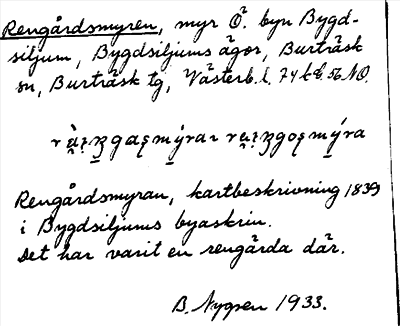 Rengårdsmyren, myr Ö. byn Bygd-
siljum, Bygdsiljums ägor, Burträsk
sn, Burträsk tg, Västerb. l. 74 k8 56 NO.
Rengårdsmyran, kartbeskrivning 1839
i Bygdsiljums byaskrin.
Det har varit en rengärda där.
B. Nygren 1933.